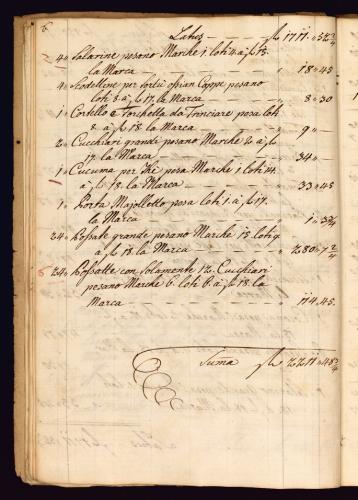 6.
Latus — fl 1711 „ 51 2/4
4 „ Salarine pesano Marche 1. loti 4. à fl 15.
la Marca — „ 18 „ 45
4 „ Scodelline per sorti ossian Coppe pesano
loti 8. à fl 17. la Marca — „ 8 „ 30
1 „ Cortello e Forchetta da Trinciare pesa loti
8. à fl 18. la Marca — „ 9 „ —
2 „ Cucchiari grandi pesano Marche 2. à fl
17. la Marca — „ 34 „ —
1 „ Cucuma per Thè pesa Marche 1. loti 14.
à fl 18. la Marca — „ 33 „ 45
1 „ Porta Majolletto pesa loti 1. à fl 17.
la Marca — „ 1 „ 3 3/4
24 „ Possate grande pesano Marche 15. loti 9.
à fl 18. la Marca — „ 280 „ 7 2/4
24 „ Possatte con solamente 12. Cucchiari
pesano Marche 6. loti 6. à fl 18. la
Marca — „ 114. 45.
Suma fl 2211 „ 48 3/4